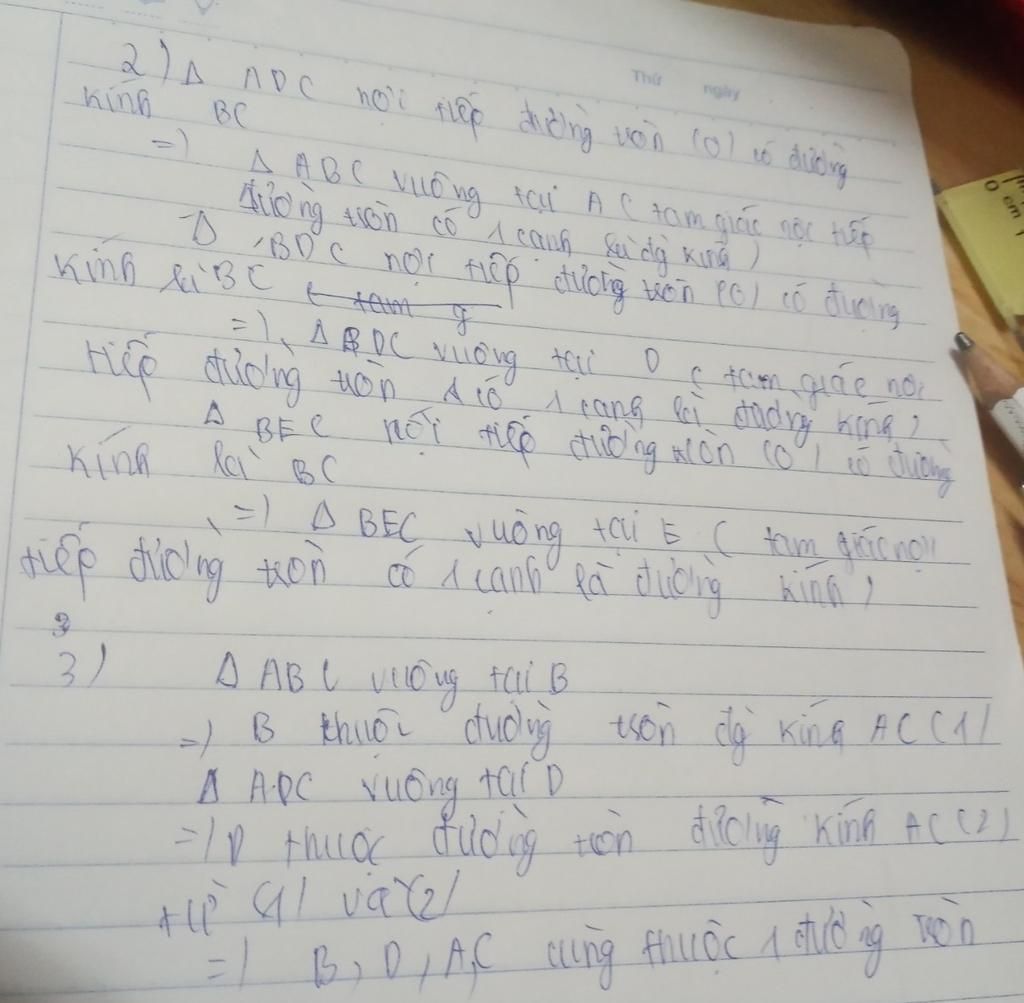 Thứ ngày
2) Δ ADC nội tiếp đường tròn (O) có đường
kính BC
=) Δ ABC vuông tại A ( tam giác nội tiếp
đường tròn có 1 cạnh là đg kính )
Δ BDC nội tiếp đường tròn (O) có đường
kính là BC ( tam g
=) Δ BDC vuông tại D ( tam giác nội
tiếp đường tròn có 1 cạnh là đường kính )
Δ BEC nội tiếp đường tròn (O) có đường
kính là BC
=) Δ BEC vuông tại E ( tam giác nội
tiếp đường tròn có 1 cạnh là đường kính )
3) Δ ABC vuông tại B
=) B thuộc đường tròn đg kính AC (1)
Δ ADC vuông tại D
=) D thuộc đường tròn đường kính AC (2)
từ (1) và (2)
=) B, D, A, C cùng thuộc 1 đường tròn
0 cm 1